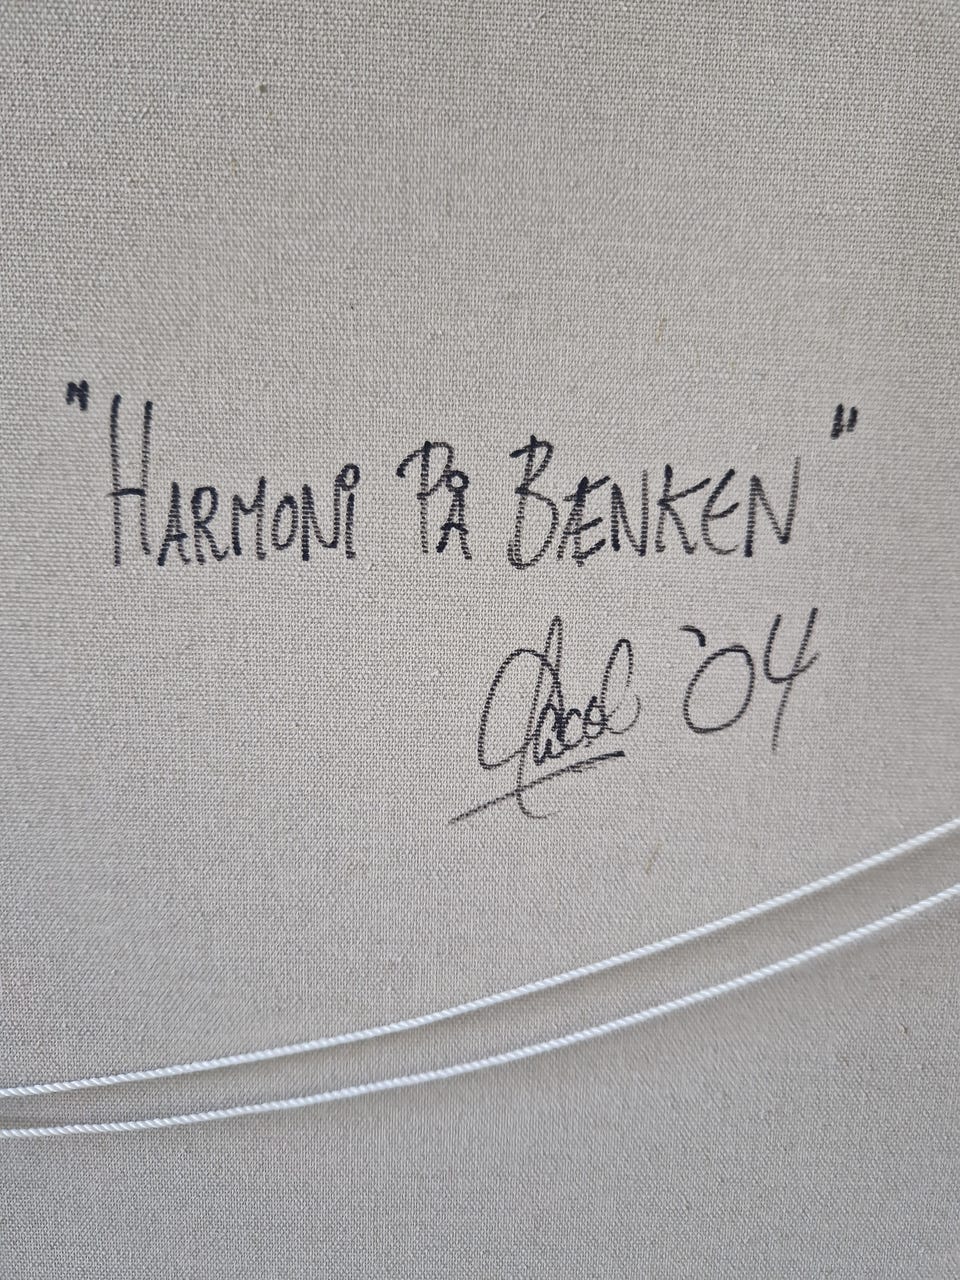 "HARMONI PÅ BÆNKEN"
Jacob '04